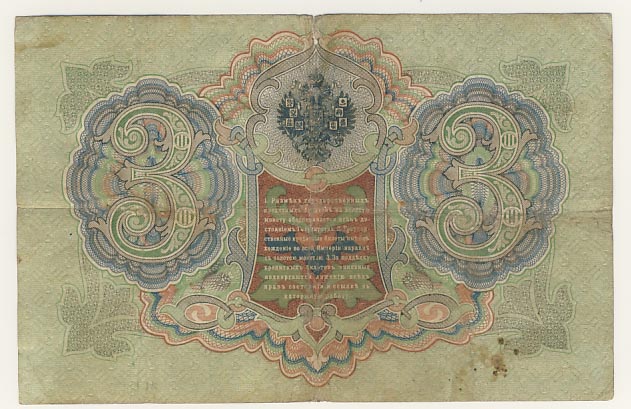 3 3
1. Размѣнъ государственныхъ
кредитныхъ билетовъ на золотую
монету обезпечивается всѣмъ до-
стояніемъ Государства. 2. Государ-
ственные кредитные билеты имѣютъ
хожденіе во всей Имперіи наравнѣ
съ золотою монетою. 3. За поддѣлку
кредитныхъ билетовъ виновные
подвергаются лишенію всѣхъ
правъ состоянія и ссылкѣ въ
каторжную работу.